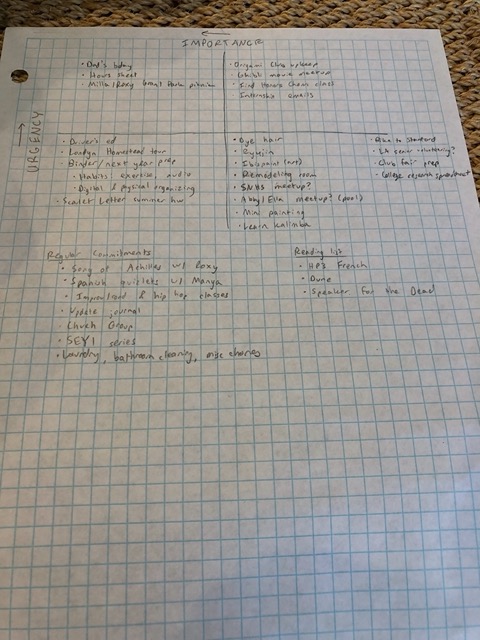 IMPORTANCE
URGENCY
• Dad's bday
• Hours sheet
• Milla/Roxy Grant Park picnic
• Origami Club upkeep
• Ghibli movie meetup
• Find Honors Chem class
• Internship emails
• Driver's ed
• Homestead tour
• Binder/next year prep
• Habits: exercise, audio
• Digital & physical organizing
• Scarlet Letter summer hw
• Dye hair
• Ibispaint (art)
• Remodeling room
• SNHS meetup?
• Abby/Ella meetup? (pool)
• Mini painting
• Learn kalimba
• Bike to Stanford
• LA senior volunteering?
• Club fair prep
• College research spreadsheet
Regular Commitments
• Song of Achilles w/ Roxy
• Spanish w/ Manya
• Improv and & hip hop classes
• Update journal
• Church Group
• SEYI series
• Laundry, bathroom cleaning, misc chores
Reading List
• HP3 French
• Dune
• Speaker for the Dead